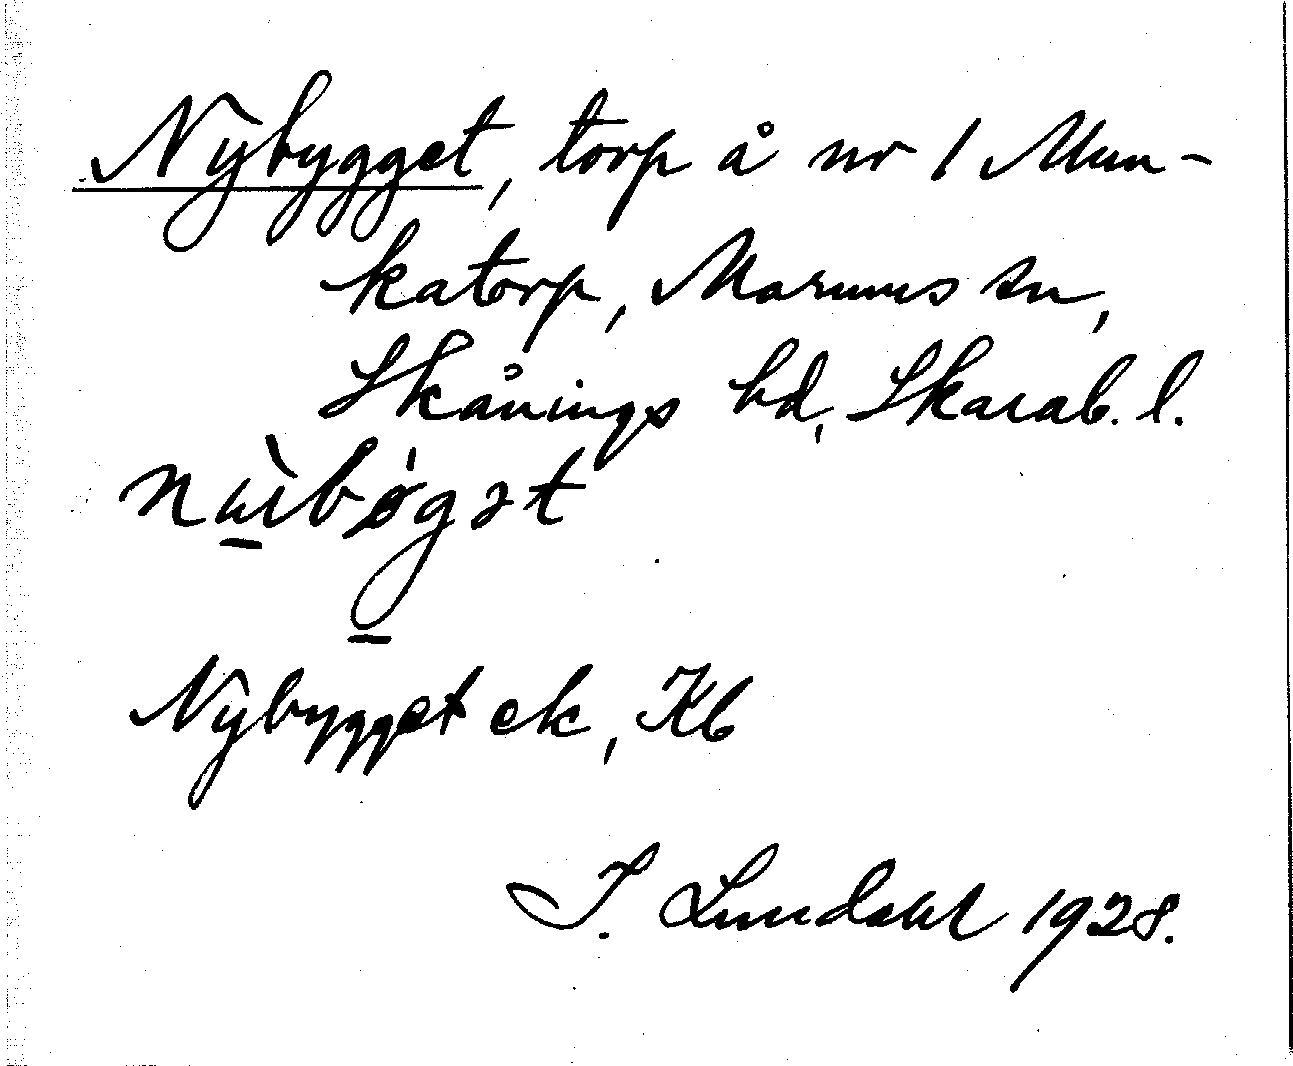 Nybygget, torp å nr 1 Mun-
katorp, Marums sn,
Skånings hd, Skarab. l.
Nybygget ek, Kb
I. Lundahl 1928.